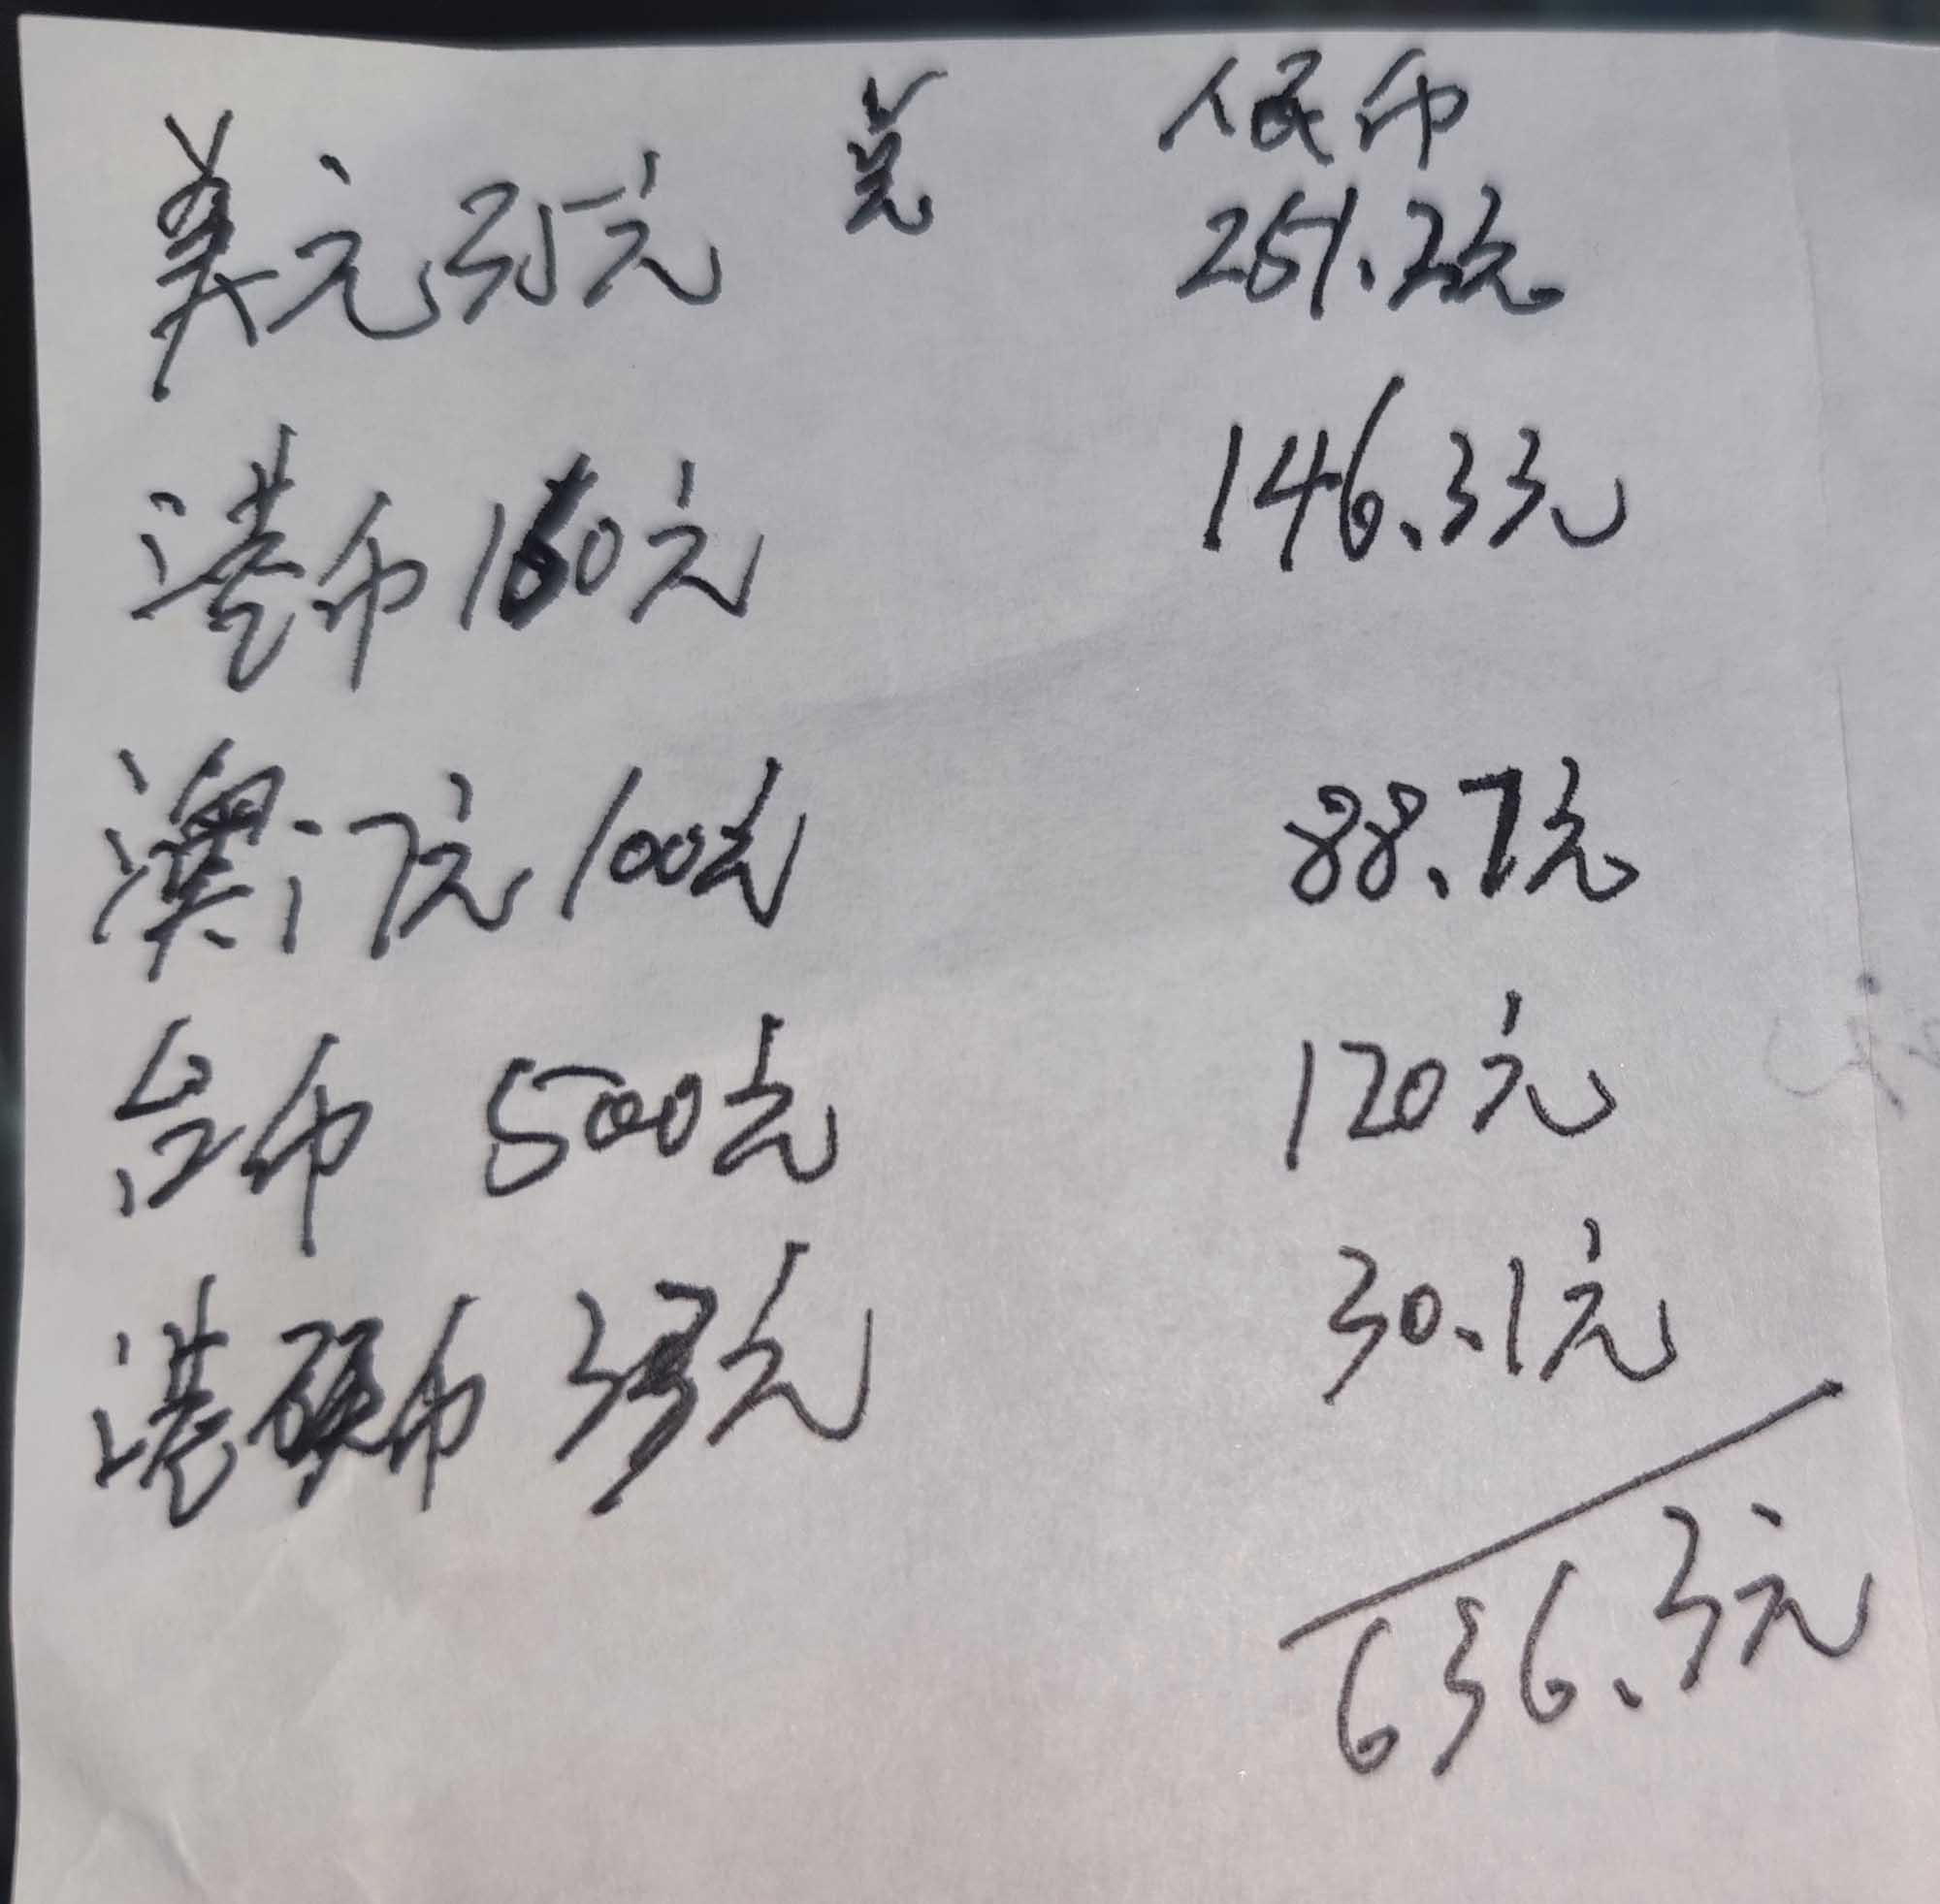 美元35元 兑 人民币
251.2元
港币160元 146.33元
澳门元100元 88.7元
台币 500元 120元
港硬币 33元 30.1元
636.3元